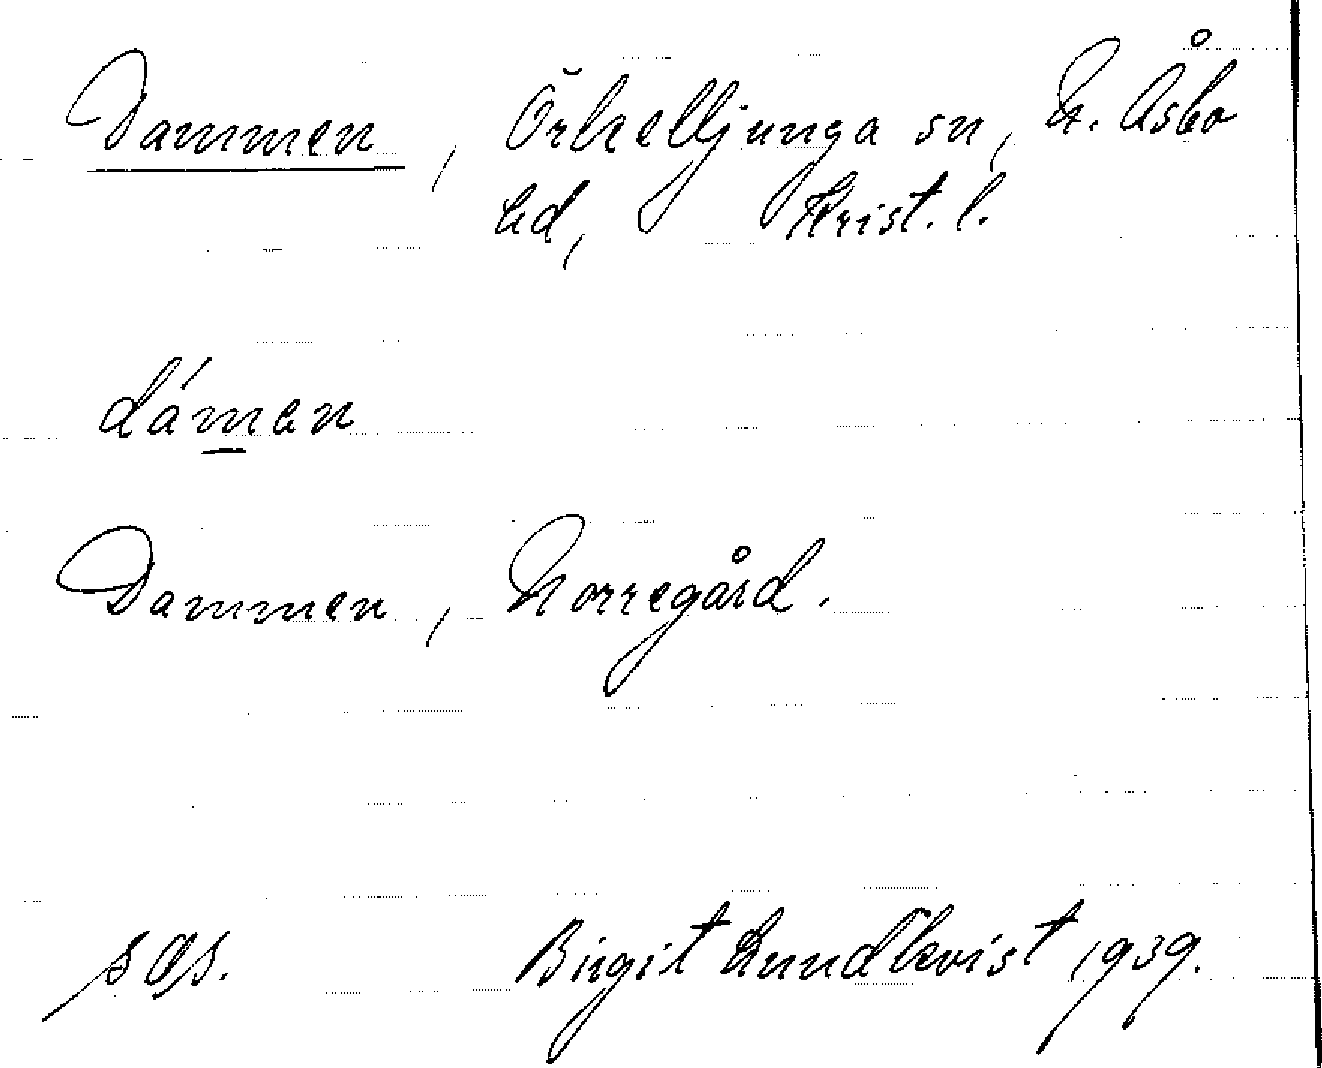 Dammen, Örkelljunga sn, N. Åsbo
hd, Krist. l.
dámen
Dammen, Norregård.
sgs. Birgit Lundkvist 1939.